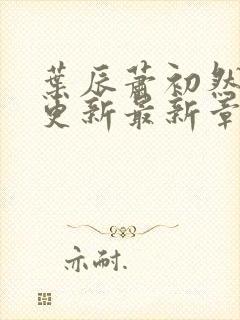 葉辰蕭初然
更新最新章
亦耐.